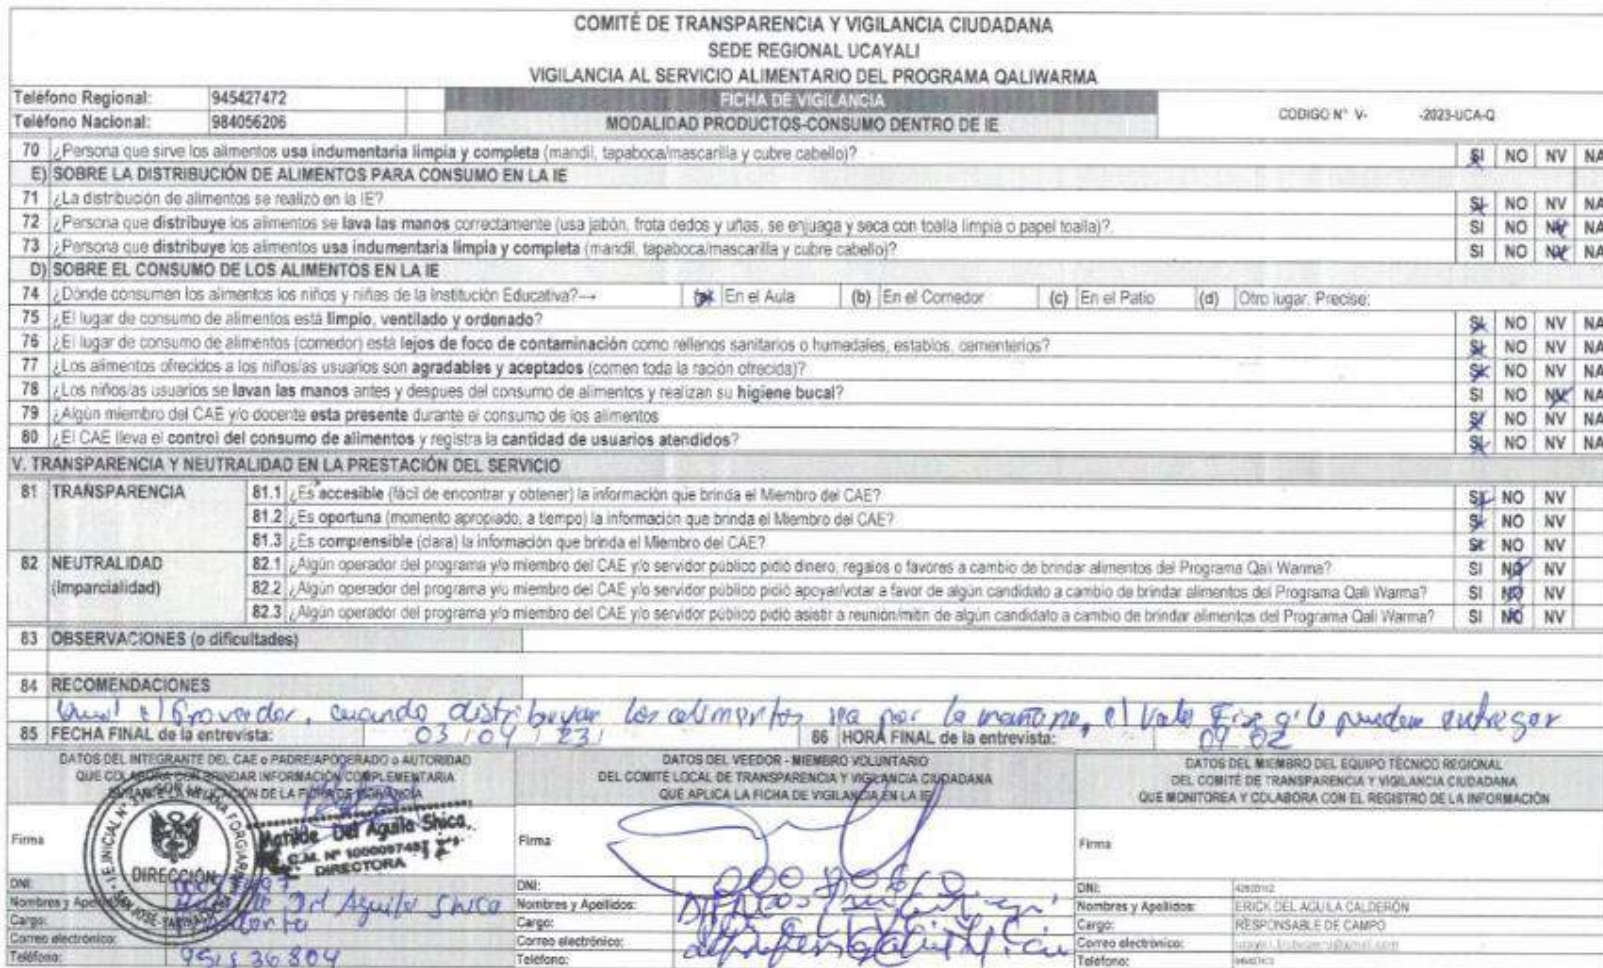 COMITÉ DE TRANSPARENCIA Y VIGILANCIA CIUDADANA
SEDE REGIONAL UCAYALI
VIGILANCIA AL SERVICIO ALIMENTARIO DEL PROGRAMA QALIWARMA
Teléfono Regional: 945427472 FICHA DE VIGILANCIA CODIGO N° V- -2023-UCA-Q
Teléfono Nacional: 984056206 MODALIDAD PRODUCTOS-CONSUMO DENTRO DE IE
70 ¿Persona que sirve los alimentos usa indumentaria limpia y completa (mandil, tapaboca/mascarilla y cubre cabello)? SI NO NV NA
E) SOBRE LA DISTRIBUCIÓN DE ALIMENTOS PARA CONSUMO EN LA IE
71 ¿La distribución de alimentos se realizó en la IE? SI NO NV NA
72 ¿Persona que distribuye los alimentos se lava las manos correctamente (usa jabón, frota dedos y uñas, se enjuaga y seca con toalla limpia o papel toalla)? SI NO NV NA
73 ¿Persona que distribuye los alimentos usa indumentaria limpia y completa (mandil, tapaboca/mascarilla y cubre cabello)? SI NO NV NA
D) SOBRE EL CONSUMO DE LOS ALIMENTOS EN LA IE
74 ¿Dónde consumen los alimentos los niños y niñas de la Institución Educativa?--→ (a) En el Aula (b) En el Comedor (c) En el Patio (d) Otro lugar. Precise:
75 ¿El lugar de consumo de alimentos está limpio, ventilado y ordenado? SI NO NV NA
76 ¿El lugar de consumo de alimentos (comedor) está lejos de foco de contaminación como rellenos sanitarios o humedales, establos, cementerios? SI NO NV NA
77 ¿Los alimentos ofrecidos a los niños/as usuarios son agradables y aceptados (comen toda la ración ofrecida)? SI NO NV NA
78 ¿Los niños/as usuarios se lavan las manos antes y despues del consumo de alimentos y realizan su higiene bucal? SI NO NV NA
79 ¿Algún miembro del CAE y/o docente esta presente durante el consumo de los alimentos SI NO NV NA
80 ¿El CAE lleva el control del consumo de alimentos y registra la cantidad de usuarios atendidos? SI NO NV NA
V. TRANSPARENCIA Y NEUTRALIDAD EN LA PRESTACIÓN DEL SERVICIO
81 TRANSPARENCIA 81.1 ¿Es accesible (fácil de encontrar y obtener) la información que brinda el Miembro del CAE? SI NO NV
81.2 ¿Es oportuna (momento apropiado, a tiempo) la información que brinda el Miembro del CAE? SI NO NV
81.3 ¿Es comprensible (clara) la información que brinda el Miembro del CAE? SI NO NV
82 NEUTRALIDAD 82.1 ¿Algún operador del programa y/o miembro del CAE y/o servidor público pidió dinero, regalos o favores a cambio de brindar alimentos del Programa Qali Warma? SI NO NV
(Imparcialidad) 82.2 ¿Algún operador del programa y/o miembro del CAE y/o servidor público pidió apoyar/votar a favor de algún candidato a cambio de brindar alimentos del Programa Qali Warma? SI NO NV
82.3 ¿Algún operador del programa y/o miembro del CAE y/o servidor público pidió asistir a reunión/mitin de algún candidato a cambio de brindar alimentos del Programa Qali Warma? SI NO NV
83 OBSERVACIONES (o dificultades)
84 RECOMENDACIONES
el Proveedor, cuando distribuyan los alimentos sea por la mañana, el Vale pueden entregar
85 FECHA FINAL de la entrevista: 03/04/23 86 HORA FINAL de la entrevista: 09 02
DATOS DEL INTEGRANTE DEL CAE o PADRE/APODERADO o AUTORIDAD
QUE COLABORA CON BRINDAR INFORMACIÓN COMPLEMENTARIA
DE LA FICHA DE VIGILANCIA
DATOS DEL VEEDOR - MIEMBRO VOLUNTARIO
DEL COMITÉ LOCAL DE TRANSPARENCIA Y VIGILANCIA CIUDADANA
QUE APLICA LA FICHA DE VIGILANCIA EN LA IE
DATOS DEL MIEMBRO DEL EQUIPO TÉCNICO REGIONAL
DEL COMITÉ DE TRANSPARENCIA Y VIGILANCIA CIUDADANA
QUE MONITOREA Y COLABORA CON EL REGISTRO DE LA INFORMACIÓN
Firma
I.E. INICIAL N°
DIRECCIÓN
SAN JOSÉ-YARINACOCHA
Matilde Del Aguila Shica
C.M. N°
DIRECTORA
DNI:
Nombres y Apellidos: Del Aguila Shica
Cargo:
Correo electrónico:
Teléfono:
Firma
DNI:
Nombres y Apellidos:
Cargo:
Correo electrónico:
Teléfono:
Firma
DNI:
Nombres y Apellidos: ERICK DEL AGUILA CALDERÓN
Cargo: RESPONSABLE DE CAMPO
Correo electrónico:
Teléfono: